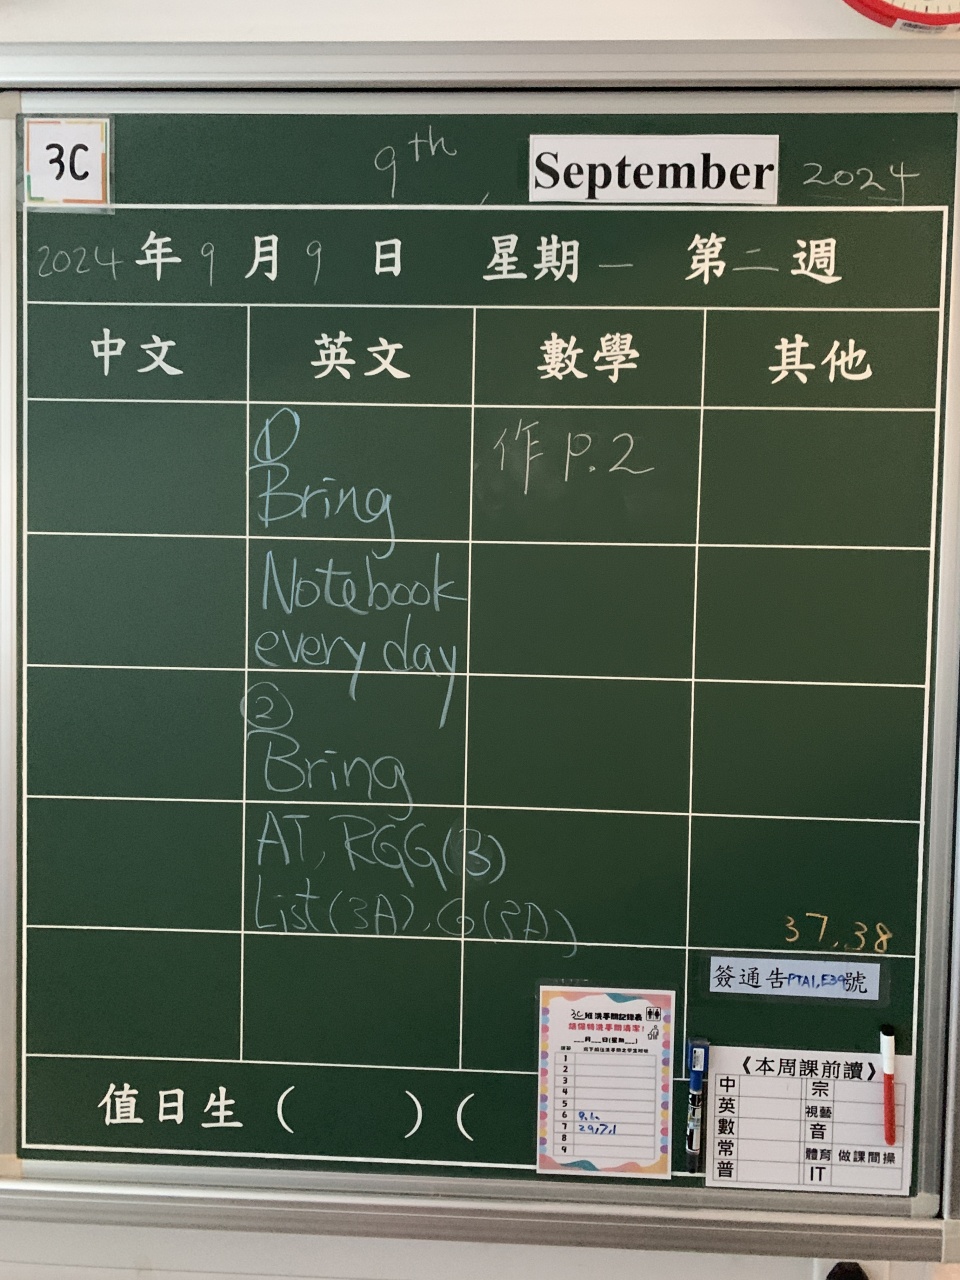 3C
9th, September 2024
2024年9月9日 星期一 第二週
中文 英文 數學 其他
①
Bring
Notebook
every day
②
Bring
AT, RGG(B)
List(3A), G(3A)
作 P.2
37, 38
簽通告PTA1, E39號
3C班洗手間記錄表
請保持洗手間清潔!
__月__日(星期__)
1
2
3
4
5
6
7 29, 7, 1
8
9
《本周課前讀》
中 宗
英 視藝
數 音
常 體育 做課間操
普 IT
值日生( )(